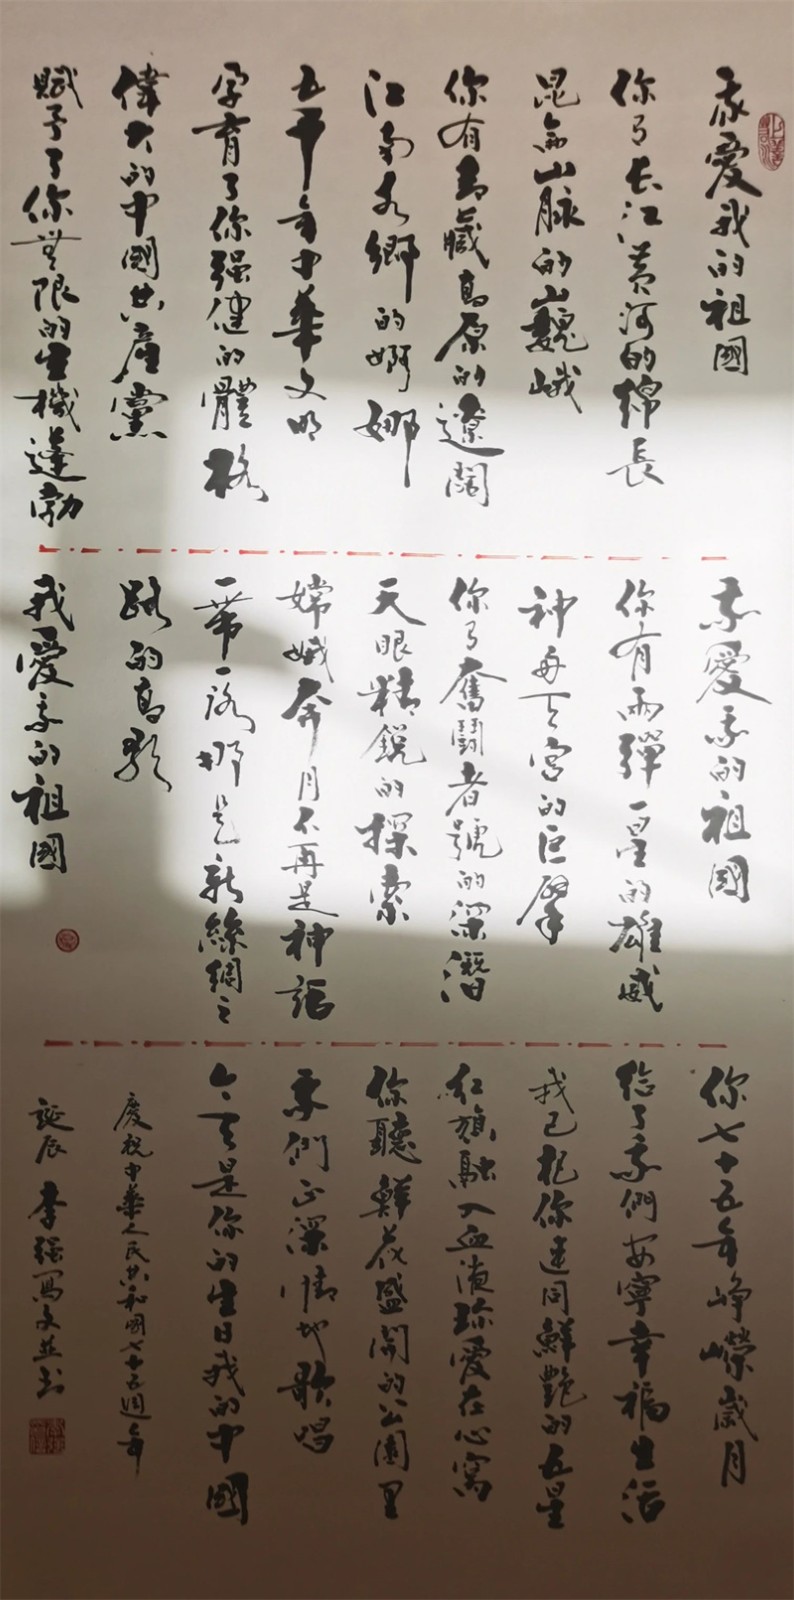 我愛我的祖國
你有长江黄河的綿長
昆侖山脉的巍峨
你有青藏高原的遼闊
江南水鄉的婀娜
五千年中華文明
孕育了你强健的體格
偉大的中國共産黨
賦予了你無限的生機蓬勃
我愛我的祖國
你有兩彈一星的雄威
神舟天宫的巨擘
你有奮鬪者號的深潛
天眼精鋭的探索
嫦娥奔月不再是神話
一带一路那是新絲綢之
路的高歌
我愛我的祖國
你七十五年峥嶸歲月
給了我們安寧幸福生活
我已把你連同鮮艷的五星
红旗融入血液珍愛在心窩
你聽鮮花盛開的公園里
我們正深情地歌唱
今天是你的生日我的中國
慶祝中華人民共和國七十五週年
誕辰 李强寫文並书